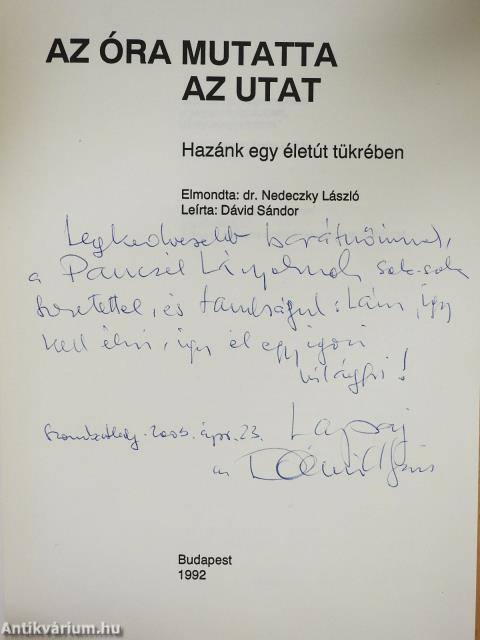 AZ ÓRA MUTATTA
AZ UTAT
Hazánk egy életút tükrében
Elmondta: dr. Nedeczky László
Leírta: Dávid Sándor
Legkedvesebb barátnőimnek,
a Pancsél Lányoknak sok-sok
szeretettel, és tanulságul: Lám, így
kell élni, így él egy igazi
világfi!
Szombathely. 2003. ápr. 23.
Dávid
Budapest
1992
Antikvárium.hu